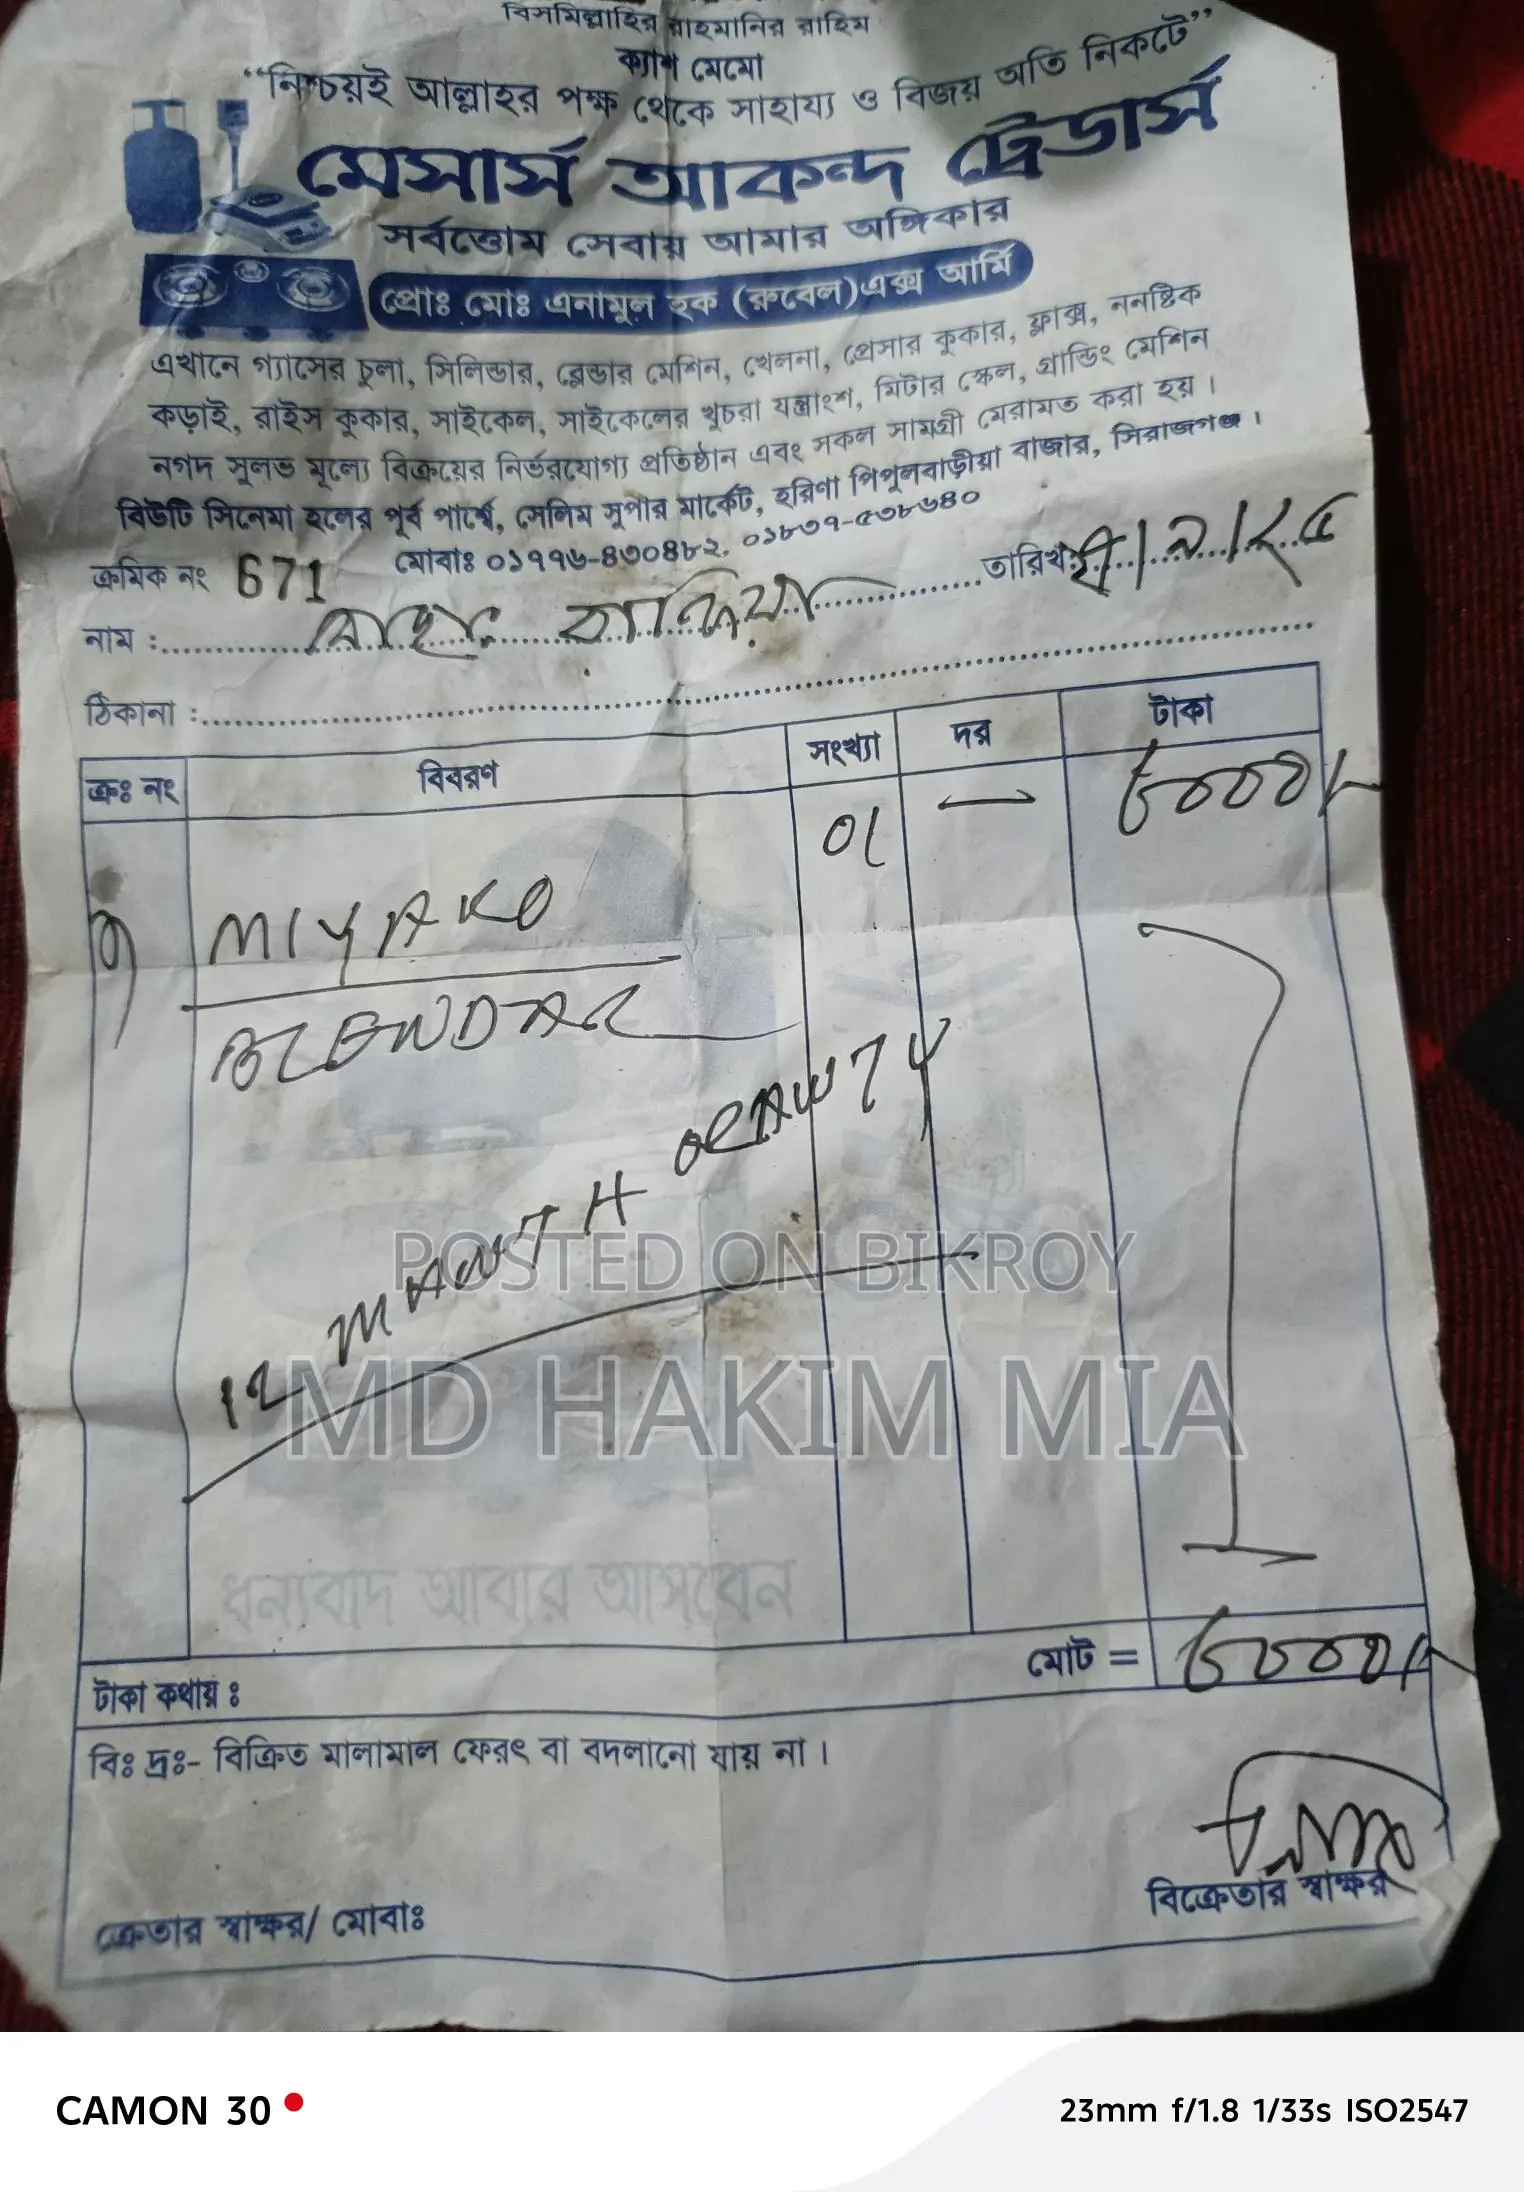 বিসমিল্লাহির রাহমানির রাহিম
ক্যাশ মেমো
“নিশ্চয়ই আল্লাহর পক্ষ থেকে সাহায্য ও বিজয় অতি নিকটে”
মেসার্স আকন্দ ট্রেডার্স
সর্বত্তোম সেবায় আমার অঙ্গিকার
প্রোঃ মোঃ এনামুল হক (রুবেল) এক্স আর্মি
এখানে গ্যাসের চুলা, সিলিন্ডার, ব্লেন্ডার মেশিন, খেলনা, প্রেসার কুকার, ফ্লাক্স, ননষ্টিক
কড়াই, রাইস কুকার, সাইকেল, সাইকেলের খুচরা যন্ত্রাংশ, মিটার স্কেল, গ্রান্ডিং মেশিন
নগদ সুলভ মূল্যে বিক্রয়ের নির্ভরযোগ্য প্রতিষ্ঠান এবং সকল সামগ্রী মেরামত করা হয়।
বিউটি সিনেমা হলের পূর্ব পার্শ্বে, সেলিম সুপার মার্কেট, হরিণা পিপুলবাড়ীয়া বাজার, সিরাজগঞ্জ।
মোবাঃ ০১৭৭৬-৪৩০৪৮২, ০১৮৩৭-৫৩৮৬৪০
ক্রমিক নং 671 তারিখঃ
নাম :
ঠিকানা :
ক্রঃ নং বিবরণ সংখ্যা দর টাকা
01
MIYAKO
BLENDAR
12 MONTH
POSTED ON BIKROY
MD HAKIM MIA
ধন্যবাদ আবার আসবেন
মোট =
টাকা কথায় ঃ
বিঃ দ্রঃ- বিক্রিত মালামাল ফেরৎ বা বদলানো যায় না।
বিক্রেতার স্বাক্ষর
ক্রেতার স্বাক্ষর/ মোবাঃ
CAMON 30 23mm f/1.8 1/33s ISO2547